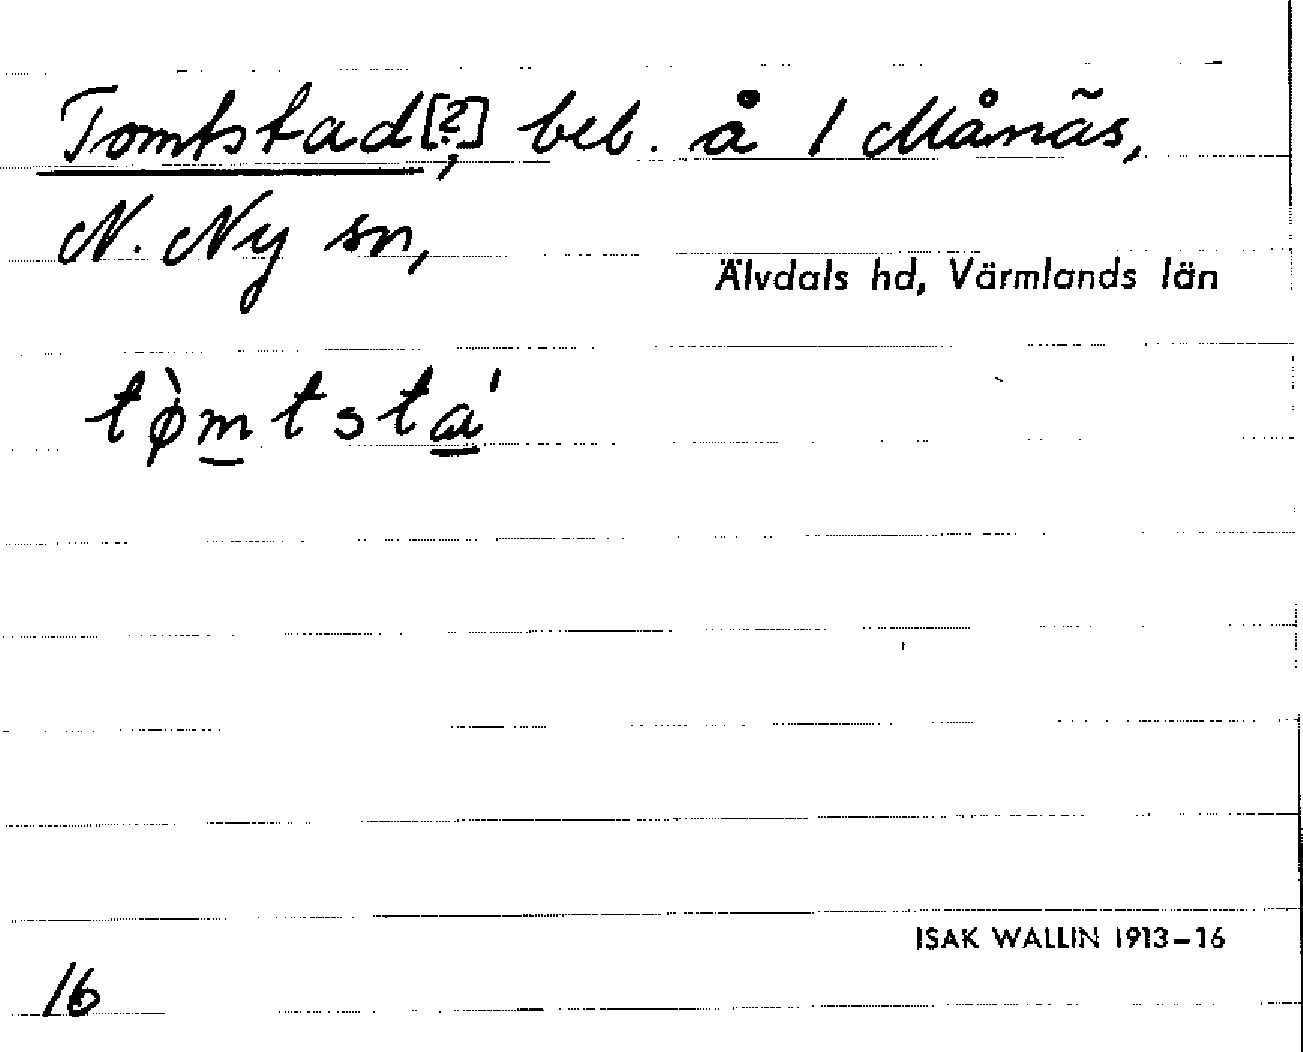 Tomtstad[?], beb. å 1 Månäs,
N. Ny sn,
Älvdals hd, Värmlands län
tø̀mtsta'
ISAK WALLIN 1913–16
16